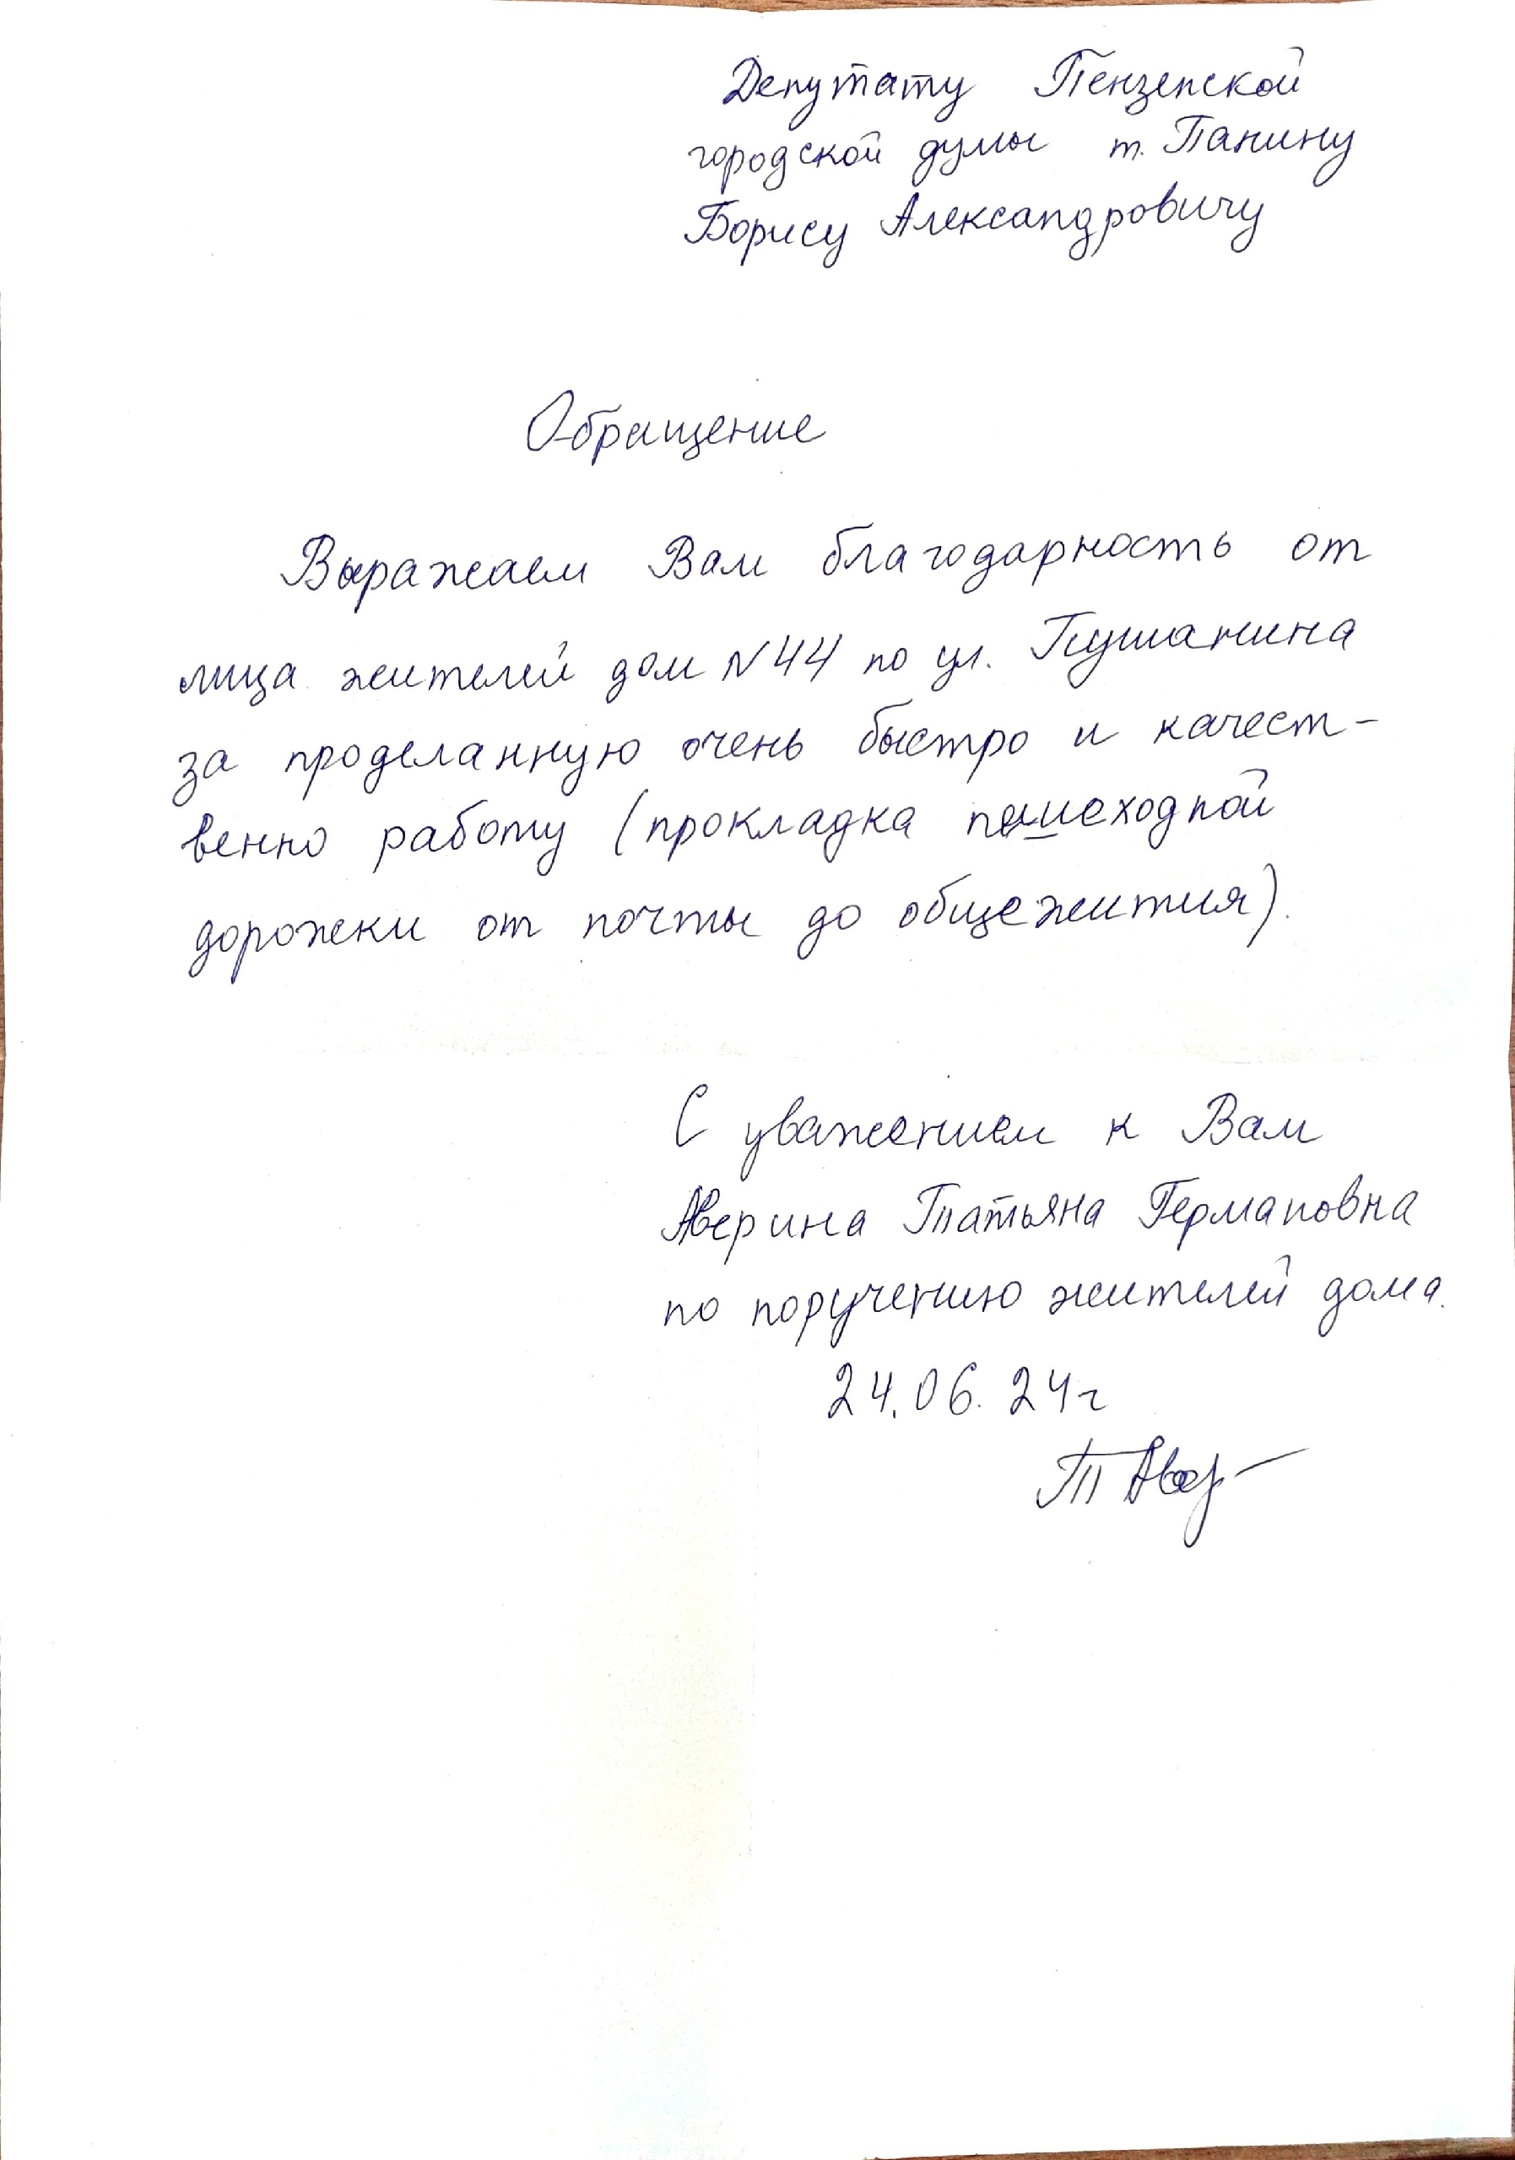 Депутату Пензенской
городской думы т. Панину
Борису Александровичу
Обращение
Выражаем Вам благодарность от
лица жителей дом №44 по ул. Пушанина
за проделанную очень быстро и качест-
венно работу (прокладка пешеходной
дорожки от почты до общежития).
С уважением к Вам
Аверина Татьяна Германовна
по поручению жителей дома.
24.06.24г